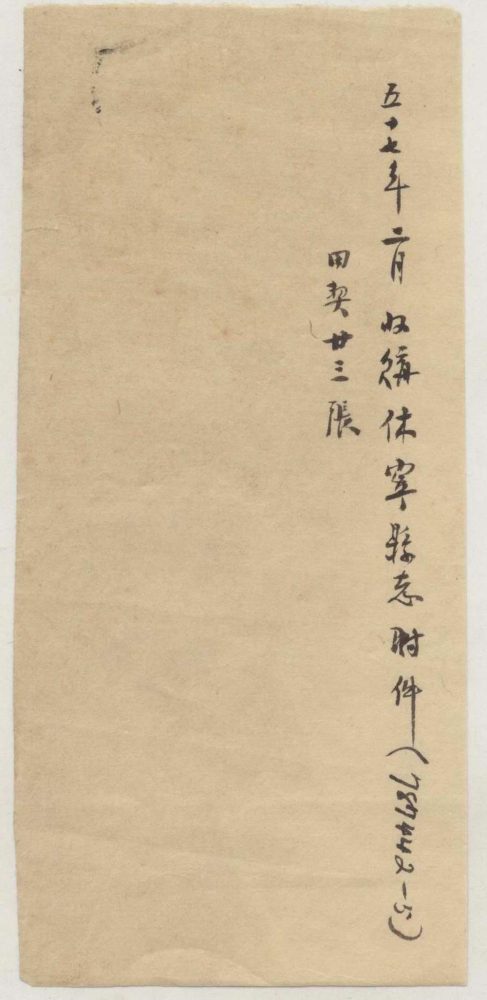 五十七年二月收購休寧縣志附件
田契廿三張